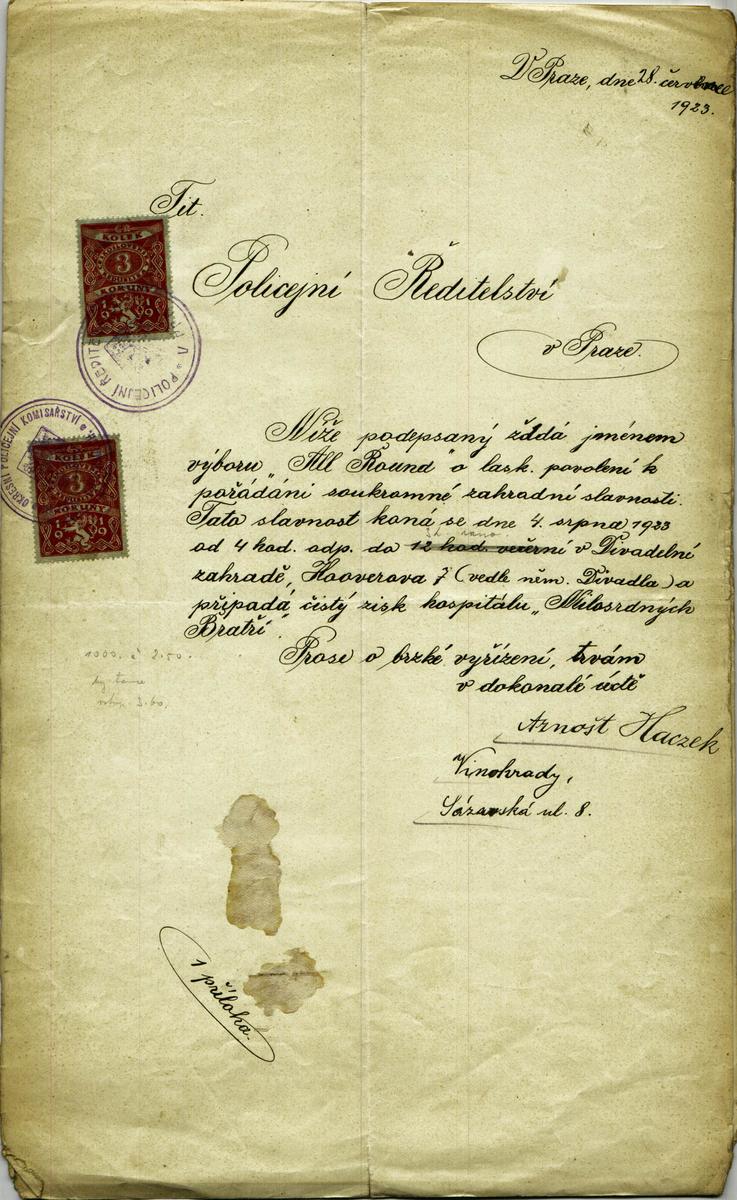 V Praze, dne 28. července
1923.
Tit.
KOLEK
3
KORUNY
1919
Policejní Ředitelství
v Praze.
POLICEJNÍ ŘEDITE
V
OKRESNÍ POLICEJNÍ KOMISAŘSTVÍ
KOLEK
3
KORUNY
1919
Níže podepsaný žádá jménem
výboru „All Round" o lask. povolení k
pořádání soukromné zahradní slavnosti.
Tato slavnost koná se dne 4. srpna 1923
ráno
od 4 hod. odp. do 12 hod. večerní v Divadelní
zahradě, Hooverova 7 (vedle něm. Divadla) a
připadá čistý zisk hospitálu „Milosrdných
Bratří".
Prose o brzké vyřízení, trvám
v dokonalé úctě
Arnošt Haczek
Vinohrady,
Sázavská ul. 8.
1000. à 2.50.
3.60,
1 příloha.